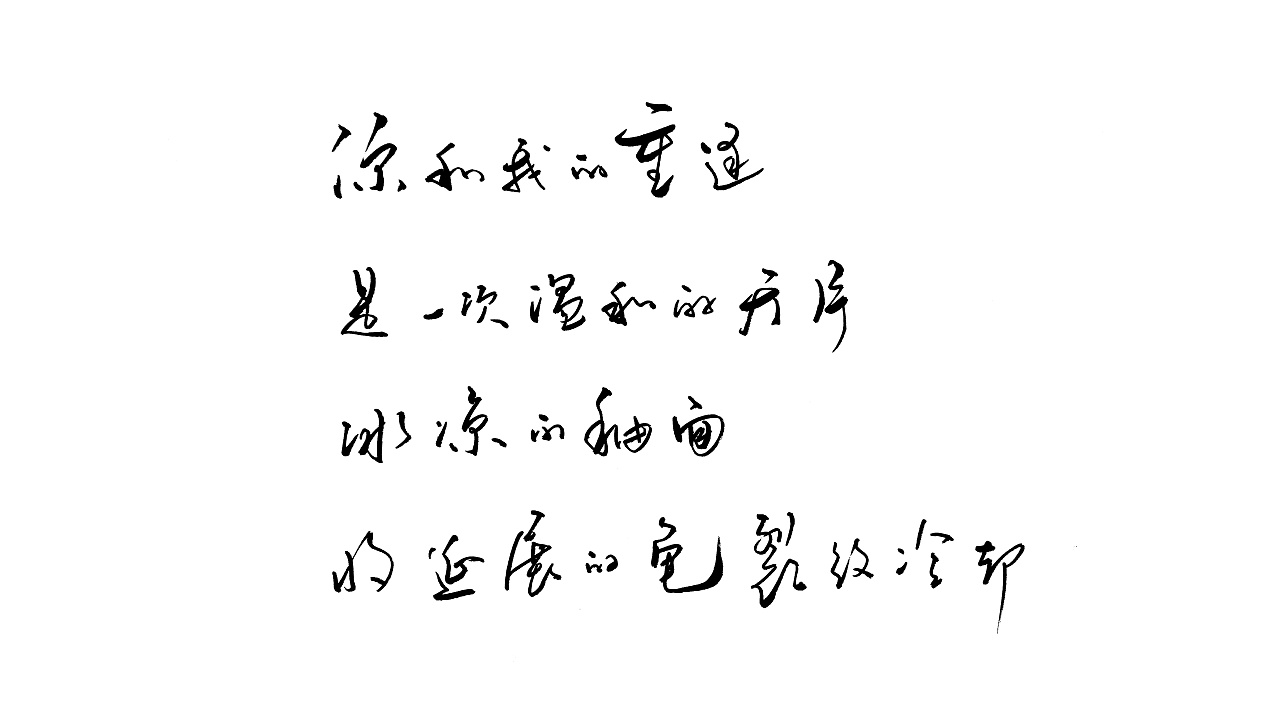 凉和我的重逢
是一次温和的开片
冰凉的釉面
将延展的龟裂纹冷却